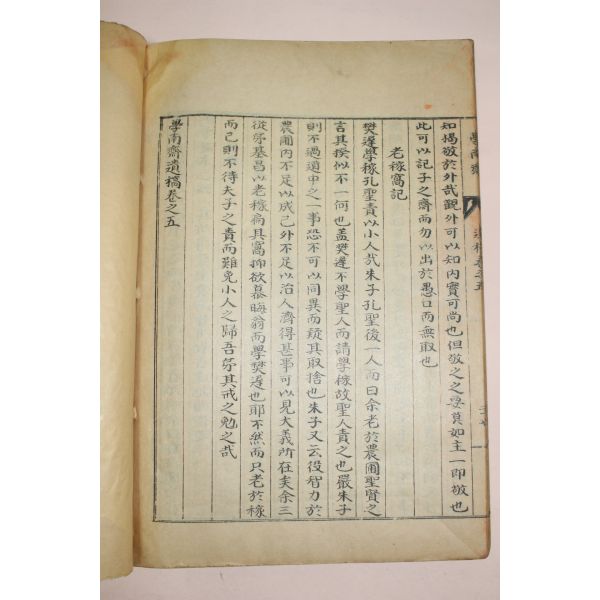 知揭敬於外哉觀外可以知內實可尚也但敬之之要莫如主一卽敬也
此可以記子之齋而勿以出於愚口而無取也
老稼窩記
樊遲學稼孔聖責以小人哉朱子孔聖後一人而曰余老於農圃聖賢之
言其揆似不一何也盖樊遲不學聖人而請學稼故聖人責之也嚴朱子
則不過遺中之一事恐不可以同異而疑其取捨也朱子又云役智力於
農圃內不足以成己外不足以治人濟得甚事可以見大義所在矣余三
從弟基昌以老稼扁其窩抑欲慕晦翁而學樊遲也耶不然而只老於稼
而已則不待夫子之責而難免小人之歸吾弟其戒之勉之哉
學南齋遺稿卷之五